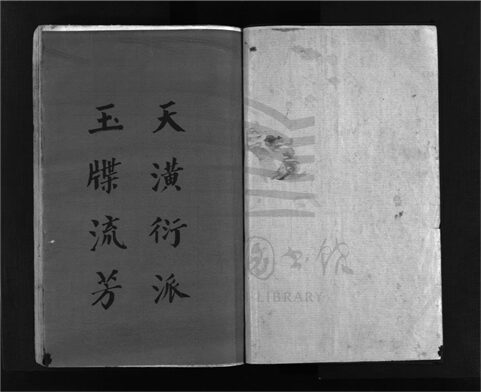 天潢衍派
玉牒流芳
書館
LIBRARY